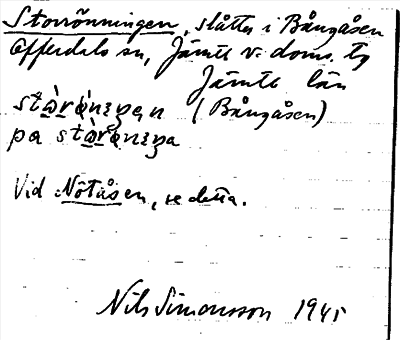 Storrönningen, slåtter i Bångåsen
Offerdals sn, Jämtl. v. doms. tg
Jämtl. län
(Bångåsen)
på
Vid Nötåsen, se detta.
Nils Simonsson 1945